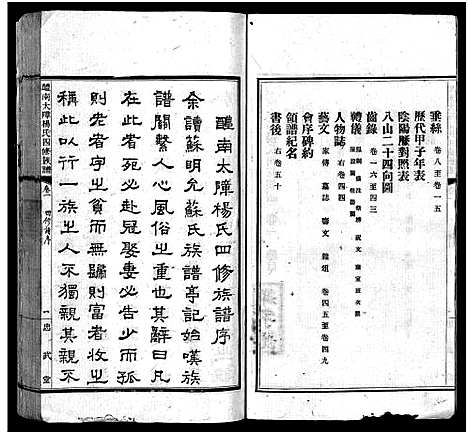 垂絲 卷八至卷一五
歷代甲子年表
陰陽曆對照表
八山二十四向圖
齒錄 卷一六至四三
禮儀
人物誌 右卷四四
藝文 家傳 墓誌 壽文 雜俎 卷四五至卷四九
會序碑約
領譜紀名
書後 右卷五十
醴南太障楊氏四修族譜序
余讀蘇明允蘇氏族譜亭記始嘆族
譜關繫人心風俗之重也其辭曰凡
在此者死必赴冠娶妻必告少而孤
則老者字之貧而無歸則富者收之
稱此以行一族之人不獨親其親不
醴南太障楊氏四修族譜 卷一 四修譜序 一 忠武堂